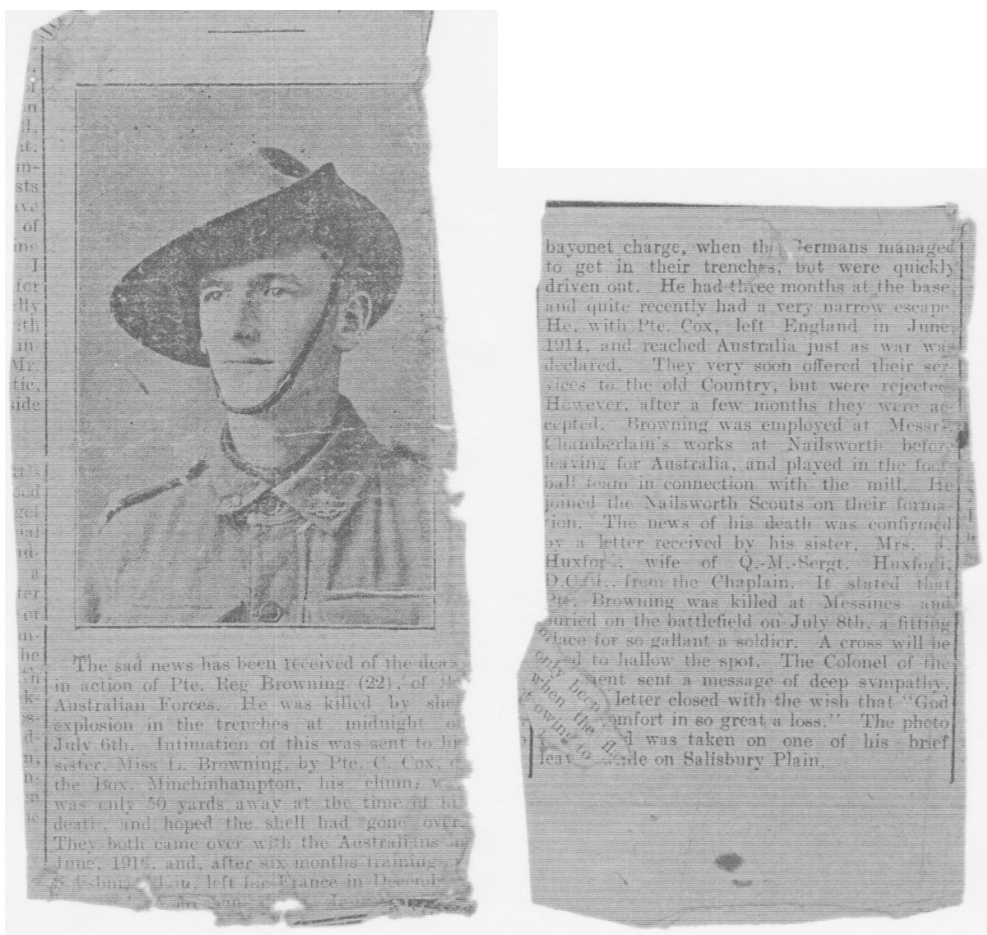 of
I
for
Mr.
side
a
The sad news has been received of the
in action of Pte. Reg Browning (22), of
Australian Forces. He was killed by
explosion in the trenches at midnight
July 6th. Intimation of this was sent to
sister, Miss L. Browning, by Pte. C. Cox,
the Box, Minchinhampton, his chum,
was only 50 yards away at the time of
death, and hoped the shell had gone over.
They both came over with the Australians
June, and, after six months training
left for France in
bayonet charge, when the Germans managed
to get in their trenches, but were quickly
driven out. He had three months at the base,
and quite recently had a very narrow escape
He, with Pte. Cox, left England in June,
1914, and reached Australia just as war was
declared. They very soon offered their ser-
vices to the old Country, but were rejected
However, after a few months they were ac-
cepted. Browning was employed at Messrs.
Chamberlain's works at Nailsworth before
leaving for Australia, and played in the foot-
ball team in connection with the mill. He
joined the Nailsworth Scouts on their forma-
tion. The news of his death was confirmed
by a letter received by his sister, Mrs.
wife of Q.-M.-Sergt. Huxford,
from the Chaplain. It stated that
Pte. Browning was killed at Messines and
buried on the battlefield on July 8th, a fitting
place for so gallant a soldier. A cross will be
to hallow the spot. The Colonel of the
sent a message of deep sympathy,
letter closed with the wish that "God
comfort in so great a loss." The photo
was taken on one of his brief
on Salisbury Plain.
only been
when the
owing to